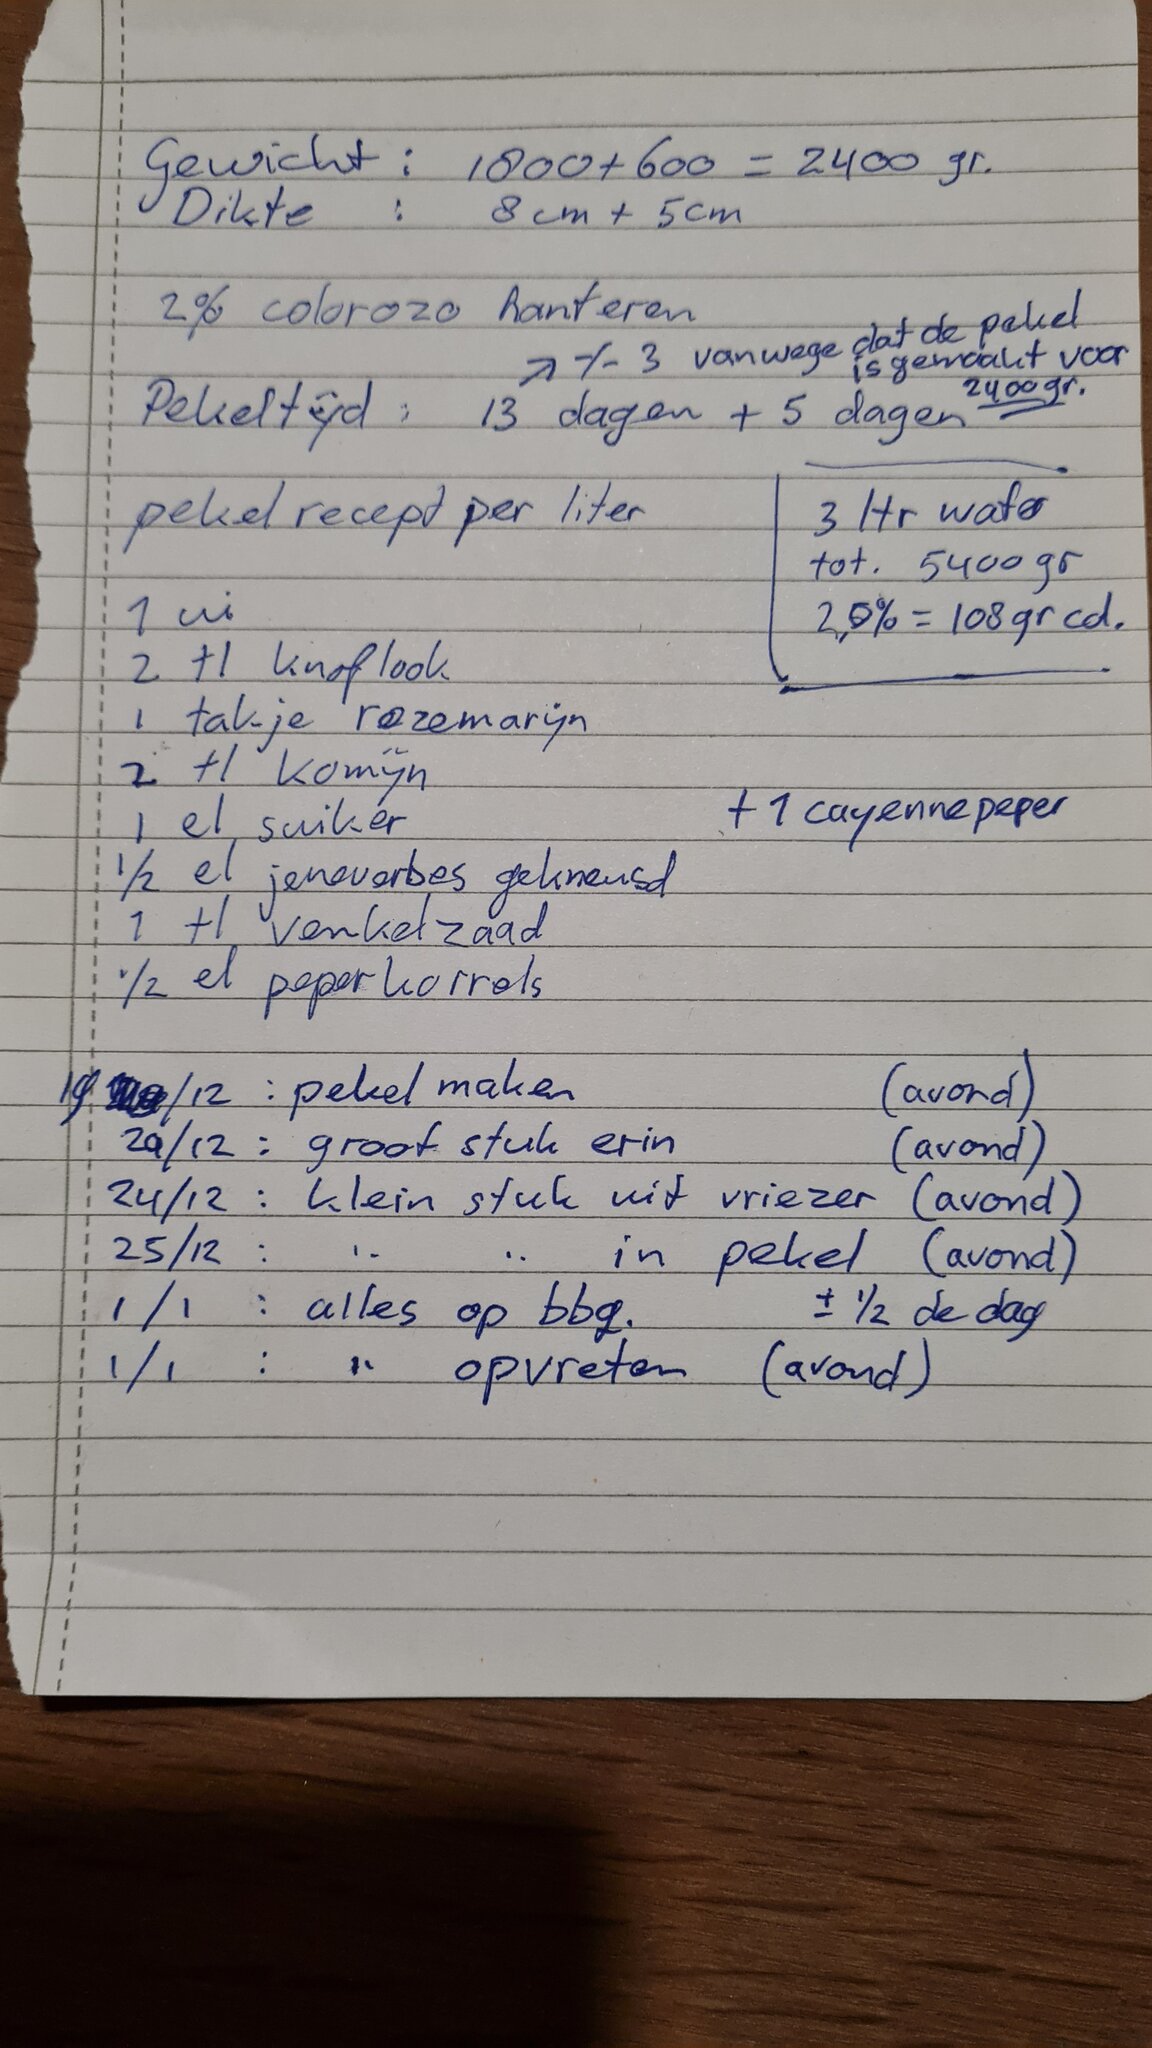 Gewicht : 1800 + 600 = 2400 gr.
Dikte : 8 cm + 5 cm
2% colorozo hanteren
→ -/- 3 vanwege dat de pekel
is gemaakt voor
2400 gr.
Pekeltijd : 13 dagen + 5 dagen
pekel recept per liter
3 ltr water
tot. 5400 gr
2,0% = 108 gr cd.
1 ui
2 tl knoflook
1 takje rozemarijn
2 tl komijn
1 el suiker
+ 1 cayennepeper
1/2 el jeneverbes gekneusd
1 tl venkelzaad
1/2 el peperkorrels
19/12 : pekel maken (avond)
20/12 : groot stuk erin (avond)
24/12 : klein stuk uit vriezer (avond)
25/12 : " " in pekel (avond)
1/1 : alles op bbq. ± 1/2 de dag
1/1 : " opvreten (avond)